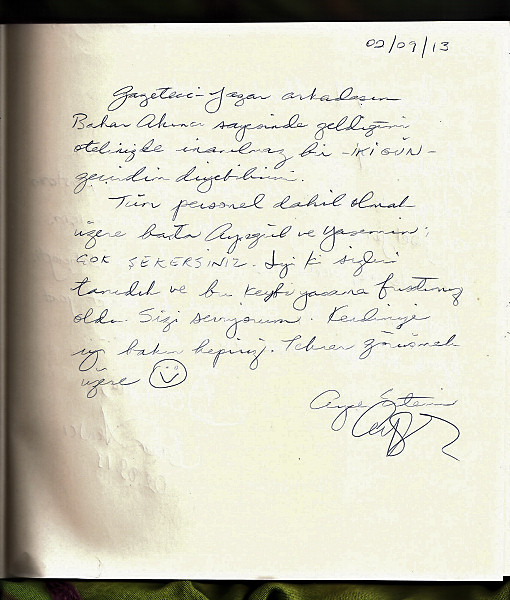 02/09/13
Gazeteci-Yazar arkadaşım
Bahar Akıncı sayesinde geldiğim
otelinizde inanılmaz bir -İKİ GÜN-
geçirdim diyebilirim.
Tüm personel dahil olmak
üzere başta Ayşegül ve Yasemin;
ÇOK ŞEKERSİNİZ. İyi ki sizleri
tanıdık ve bu keyfi yaşama fırsatımız
oldu. Sizi seviyorum. Kendinize
iyi bakın hepiniz. Tekrar görüşmek
üzere
Ayşe